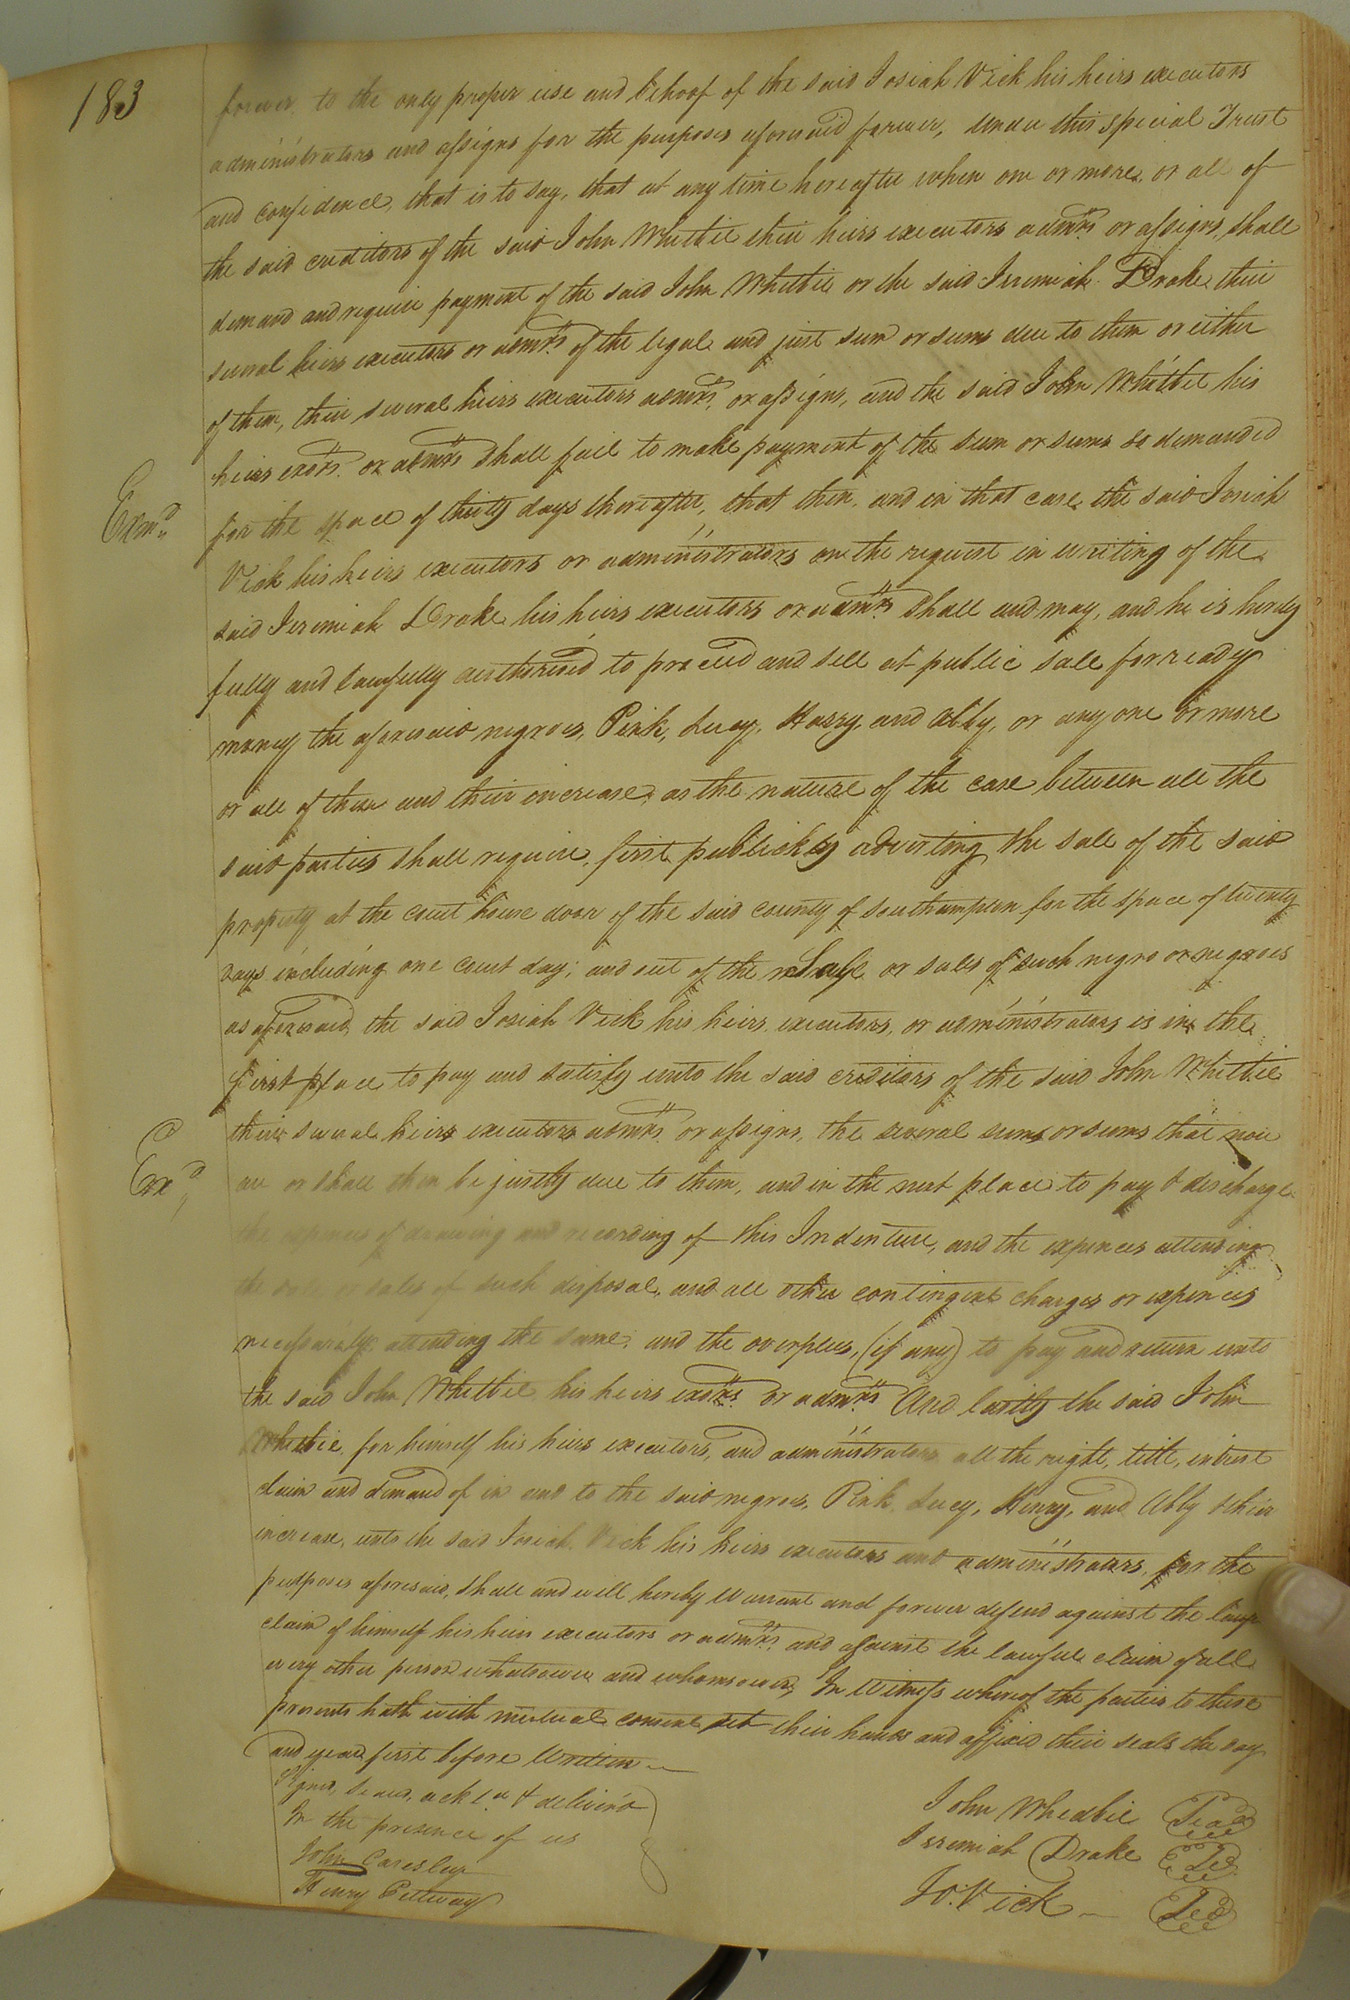 183
forever to the only proper use and behoof of the said Josiah Vick his heirs executors
administrators and assigns for the purposes aforesaid forever, Under this special Trust
and confidence, that is to say, that at any time hereafter when one or more or all of
the said creditors of the said John Whitbie their heirs executors admrs or assigns, shall
demand and require payment of the said John Whitbie or the said Jeremiah Drake, their
several heirs executors or admrs of the legal and just sum or sums due to them or either
of them, their several heirs executors admrs or assigns, and the said John Whitbie his
heirs exors or admrs shall fail to make payment of the sum or sums so demanded
Exmd
for the space of thirty days thereafter, that then, and in that case, the said Josiah
Vick his heirs executors or administrators on the request in writing of the
said Jeremiah Drake his heirs executors or admrs shall and may, and he is hereby
fully and lawfully authorised to proceed and sell at public sale for ready
money the aforesaid negroes, Pink, Lucy, Harry, and Abby, or any one or more
or all of them and their increase, as the nature of the case between all the
said parties shall require, first publickly adverting the sale of the said
property at the court house door of the said county of Southampton for the space of twenty
days including one court day; and out of the Sale or sales of such negro or negroes
as aforesaid, the said Josiah Vick his heirs, executors, or administrators is in the
first place to pay and satisfy unto the said creditors of the said John Whitbie
their several heirs executors admrs or assigns, the several sums or sums that now
Exd
are or shall then be justly due to them, and in the next place to pay & discharge
the expences of drawing and recording of this Indenture, and the expences attending
the sale or sales of such disposal, and all other contingent charges or expences
necessarily attending the same; and the overplus, (if any) to pay and return unto
the said John Whitbie his heirs exors or admrs And lastly the said John
Whitbie for himself his heirs executors, and administrators all the right, title, interest
claim and demand of in and to the said negroes, Pink, Lucy, Henry, and Abby & their
increase, unto the said Josiah Vick his heirs executors and administrators, for the
purposes aforesaid, shall and will hereby Warrant and forever defend against the
claim of himself his heirs executors or admrs and against the lawful claim of all
every other person whatsoever and whomsoever, In Witness whereof the parties to these
presents hath with mutual consent set their hands and affixed their seals the day
and year first before Written
Signed, Sealed, ackd & deliverd
In the presence of us
John
Henry Pettway
John Wheabie Seal
Jeremiah Drake Seal
Jo. Vick Seal